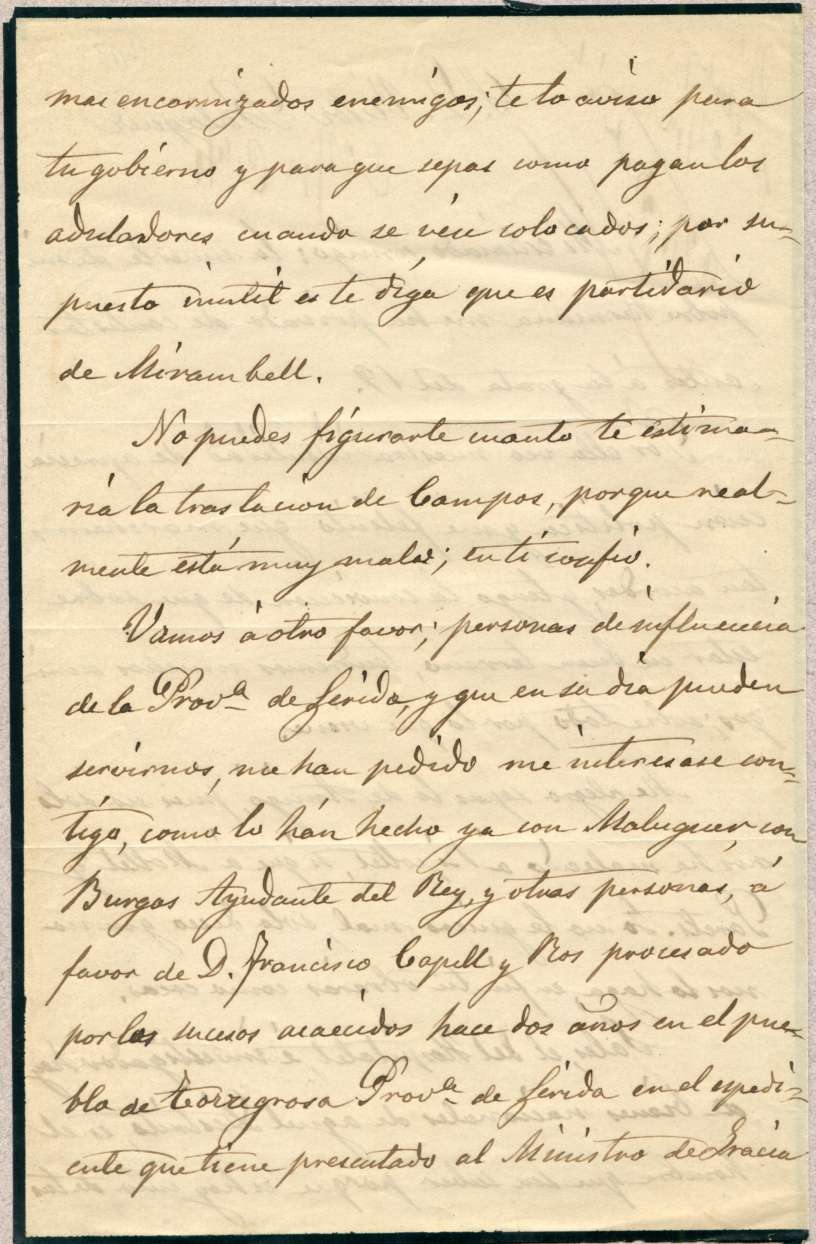 mas encarnizados enemigos; te lo aviso para
tu gobierno y para que sepas como pagan los
aduladores cuando se vén colocados; por su-
puesto inutil es te diga que es partidario
de Mirambell.
No puedes figurarte cuanto te estima-
ria la traslacion de Campos, porque real-
mente está muy malo; en ti confio.
Vamos á otro favor; personas de influencia
de la Prov.ª de Lérida, y que en su dia pueden
servirnos, me han pedido me interesase con-
tigo, como lo hán hecho ya con Maluquer, con
Burgos Ayudante del Rey, y otras personas, á
favor de D. Francisco Capell y Ros procesado
por los sucesos acaecidos hace dos años en el pue-
blo de Torregrosa Prov.ª de Lérida en el espedi-
ente que tiene presentado al Ministro de Gracia